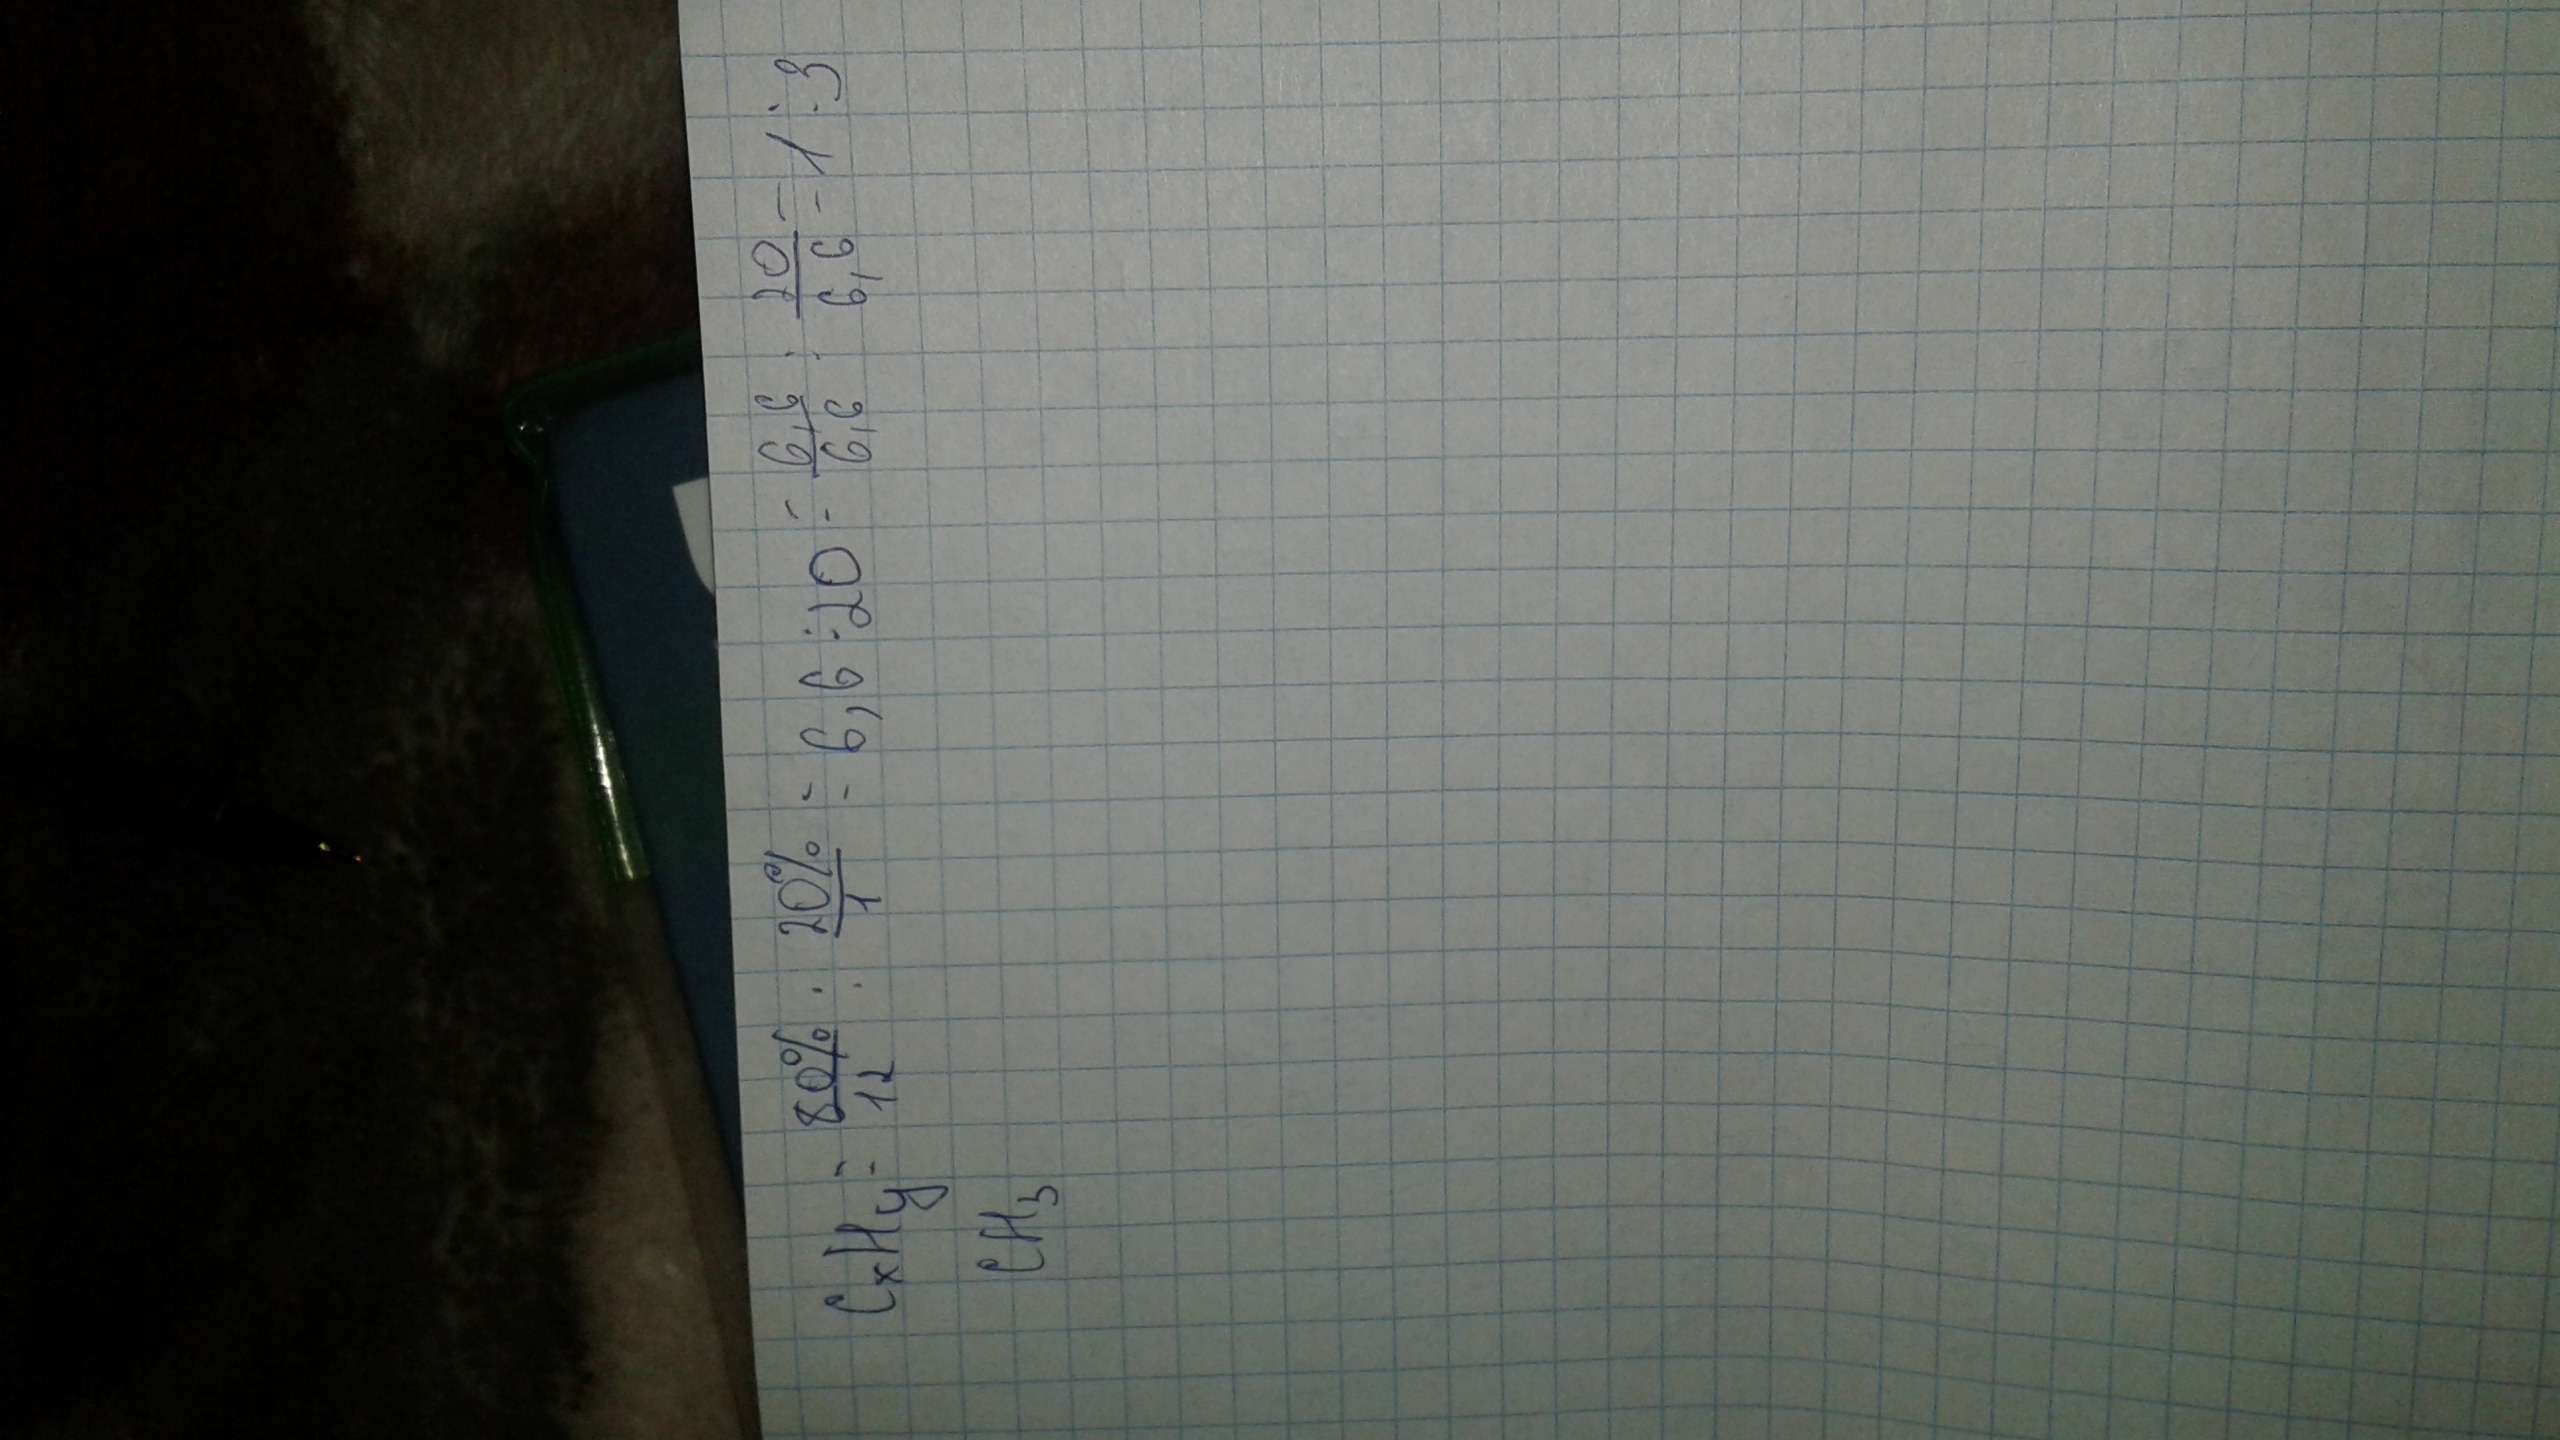 CxHy = 80%/12 : 20%/1 = 6,6 : 20 = 6,6/6,6 : 20/6,6 = 1 : 3
CH3